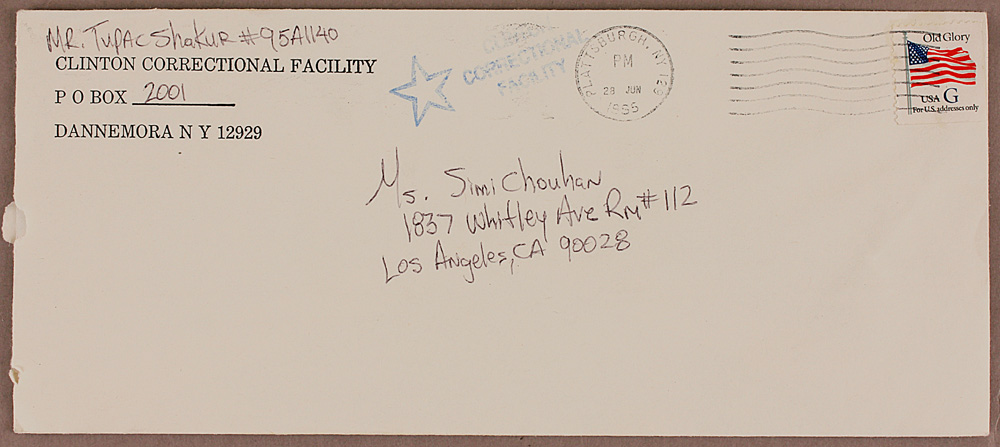 MR. Tupac Shakur # 95A1140
CLINTON CORRECTIONAL FACILITY
P O BOX 2001
DANNEMORA N Y 12929
CORRECTIONAL
FACILITY
PLATTSBURGH, NY 129
PM
28 JUN
1995
Old Glory
USA G
For U.S. addresses only
Ms. Simi Chouhan
1837 Whitley Ave Rm # 112
Los Angeles, CA 90028